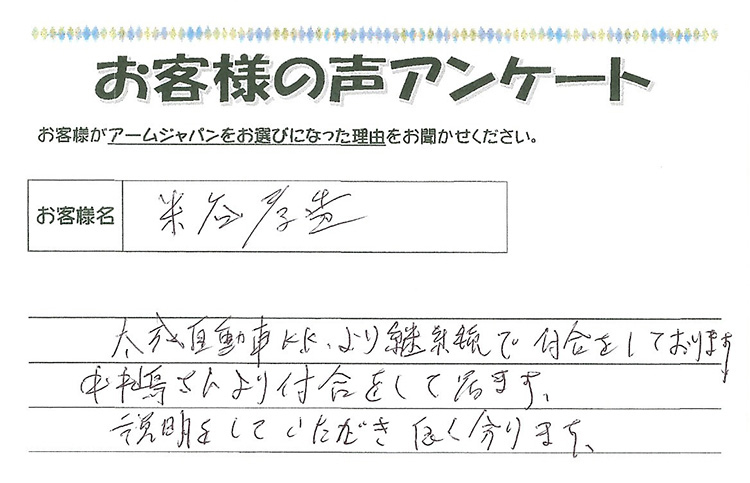 お客様の声アンケート
お客様がアームジャパンをお選びになった理由をお聞かせください。
お客様名
米谷
太成自動車KK.より継続で付合をしております
中嶋さんより付合をして居ます、
説明をしていただき良く分ります、